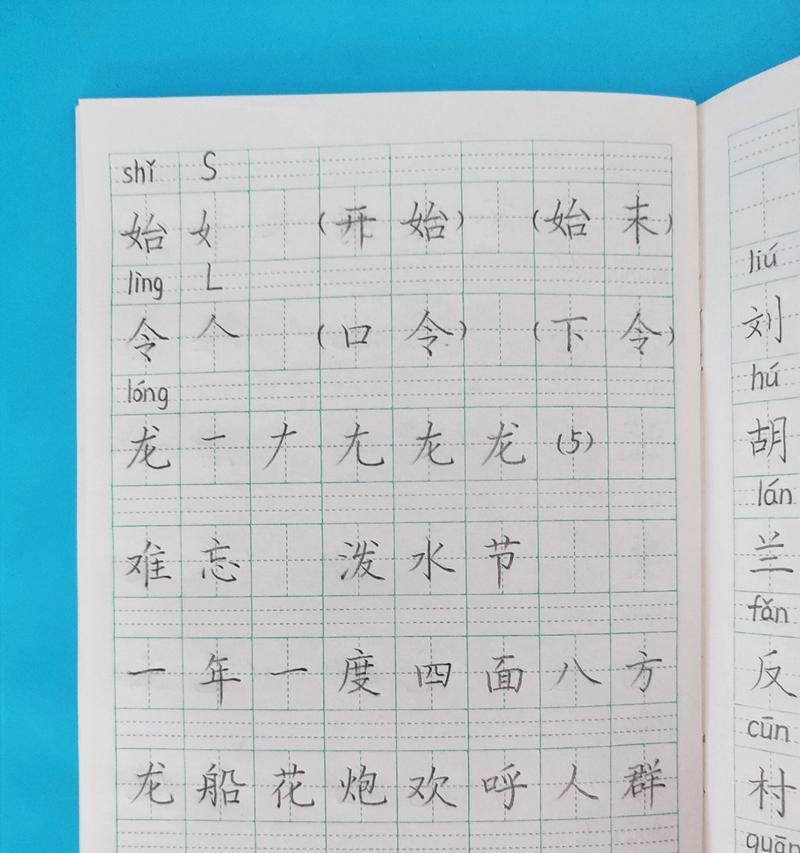 shǐ S
始 女 (开始) (始末)
lìng L
令 人 (口令) (下令)
lóng
龙 一 ナ 尢 龙 龙 (5)
难忘 泼水节
一年一度四面八方
龙船花炮欢呼人群
liú
刘
hú
胡
lán
兰
fǎn
反
cūn
村
quān